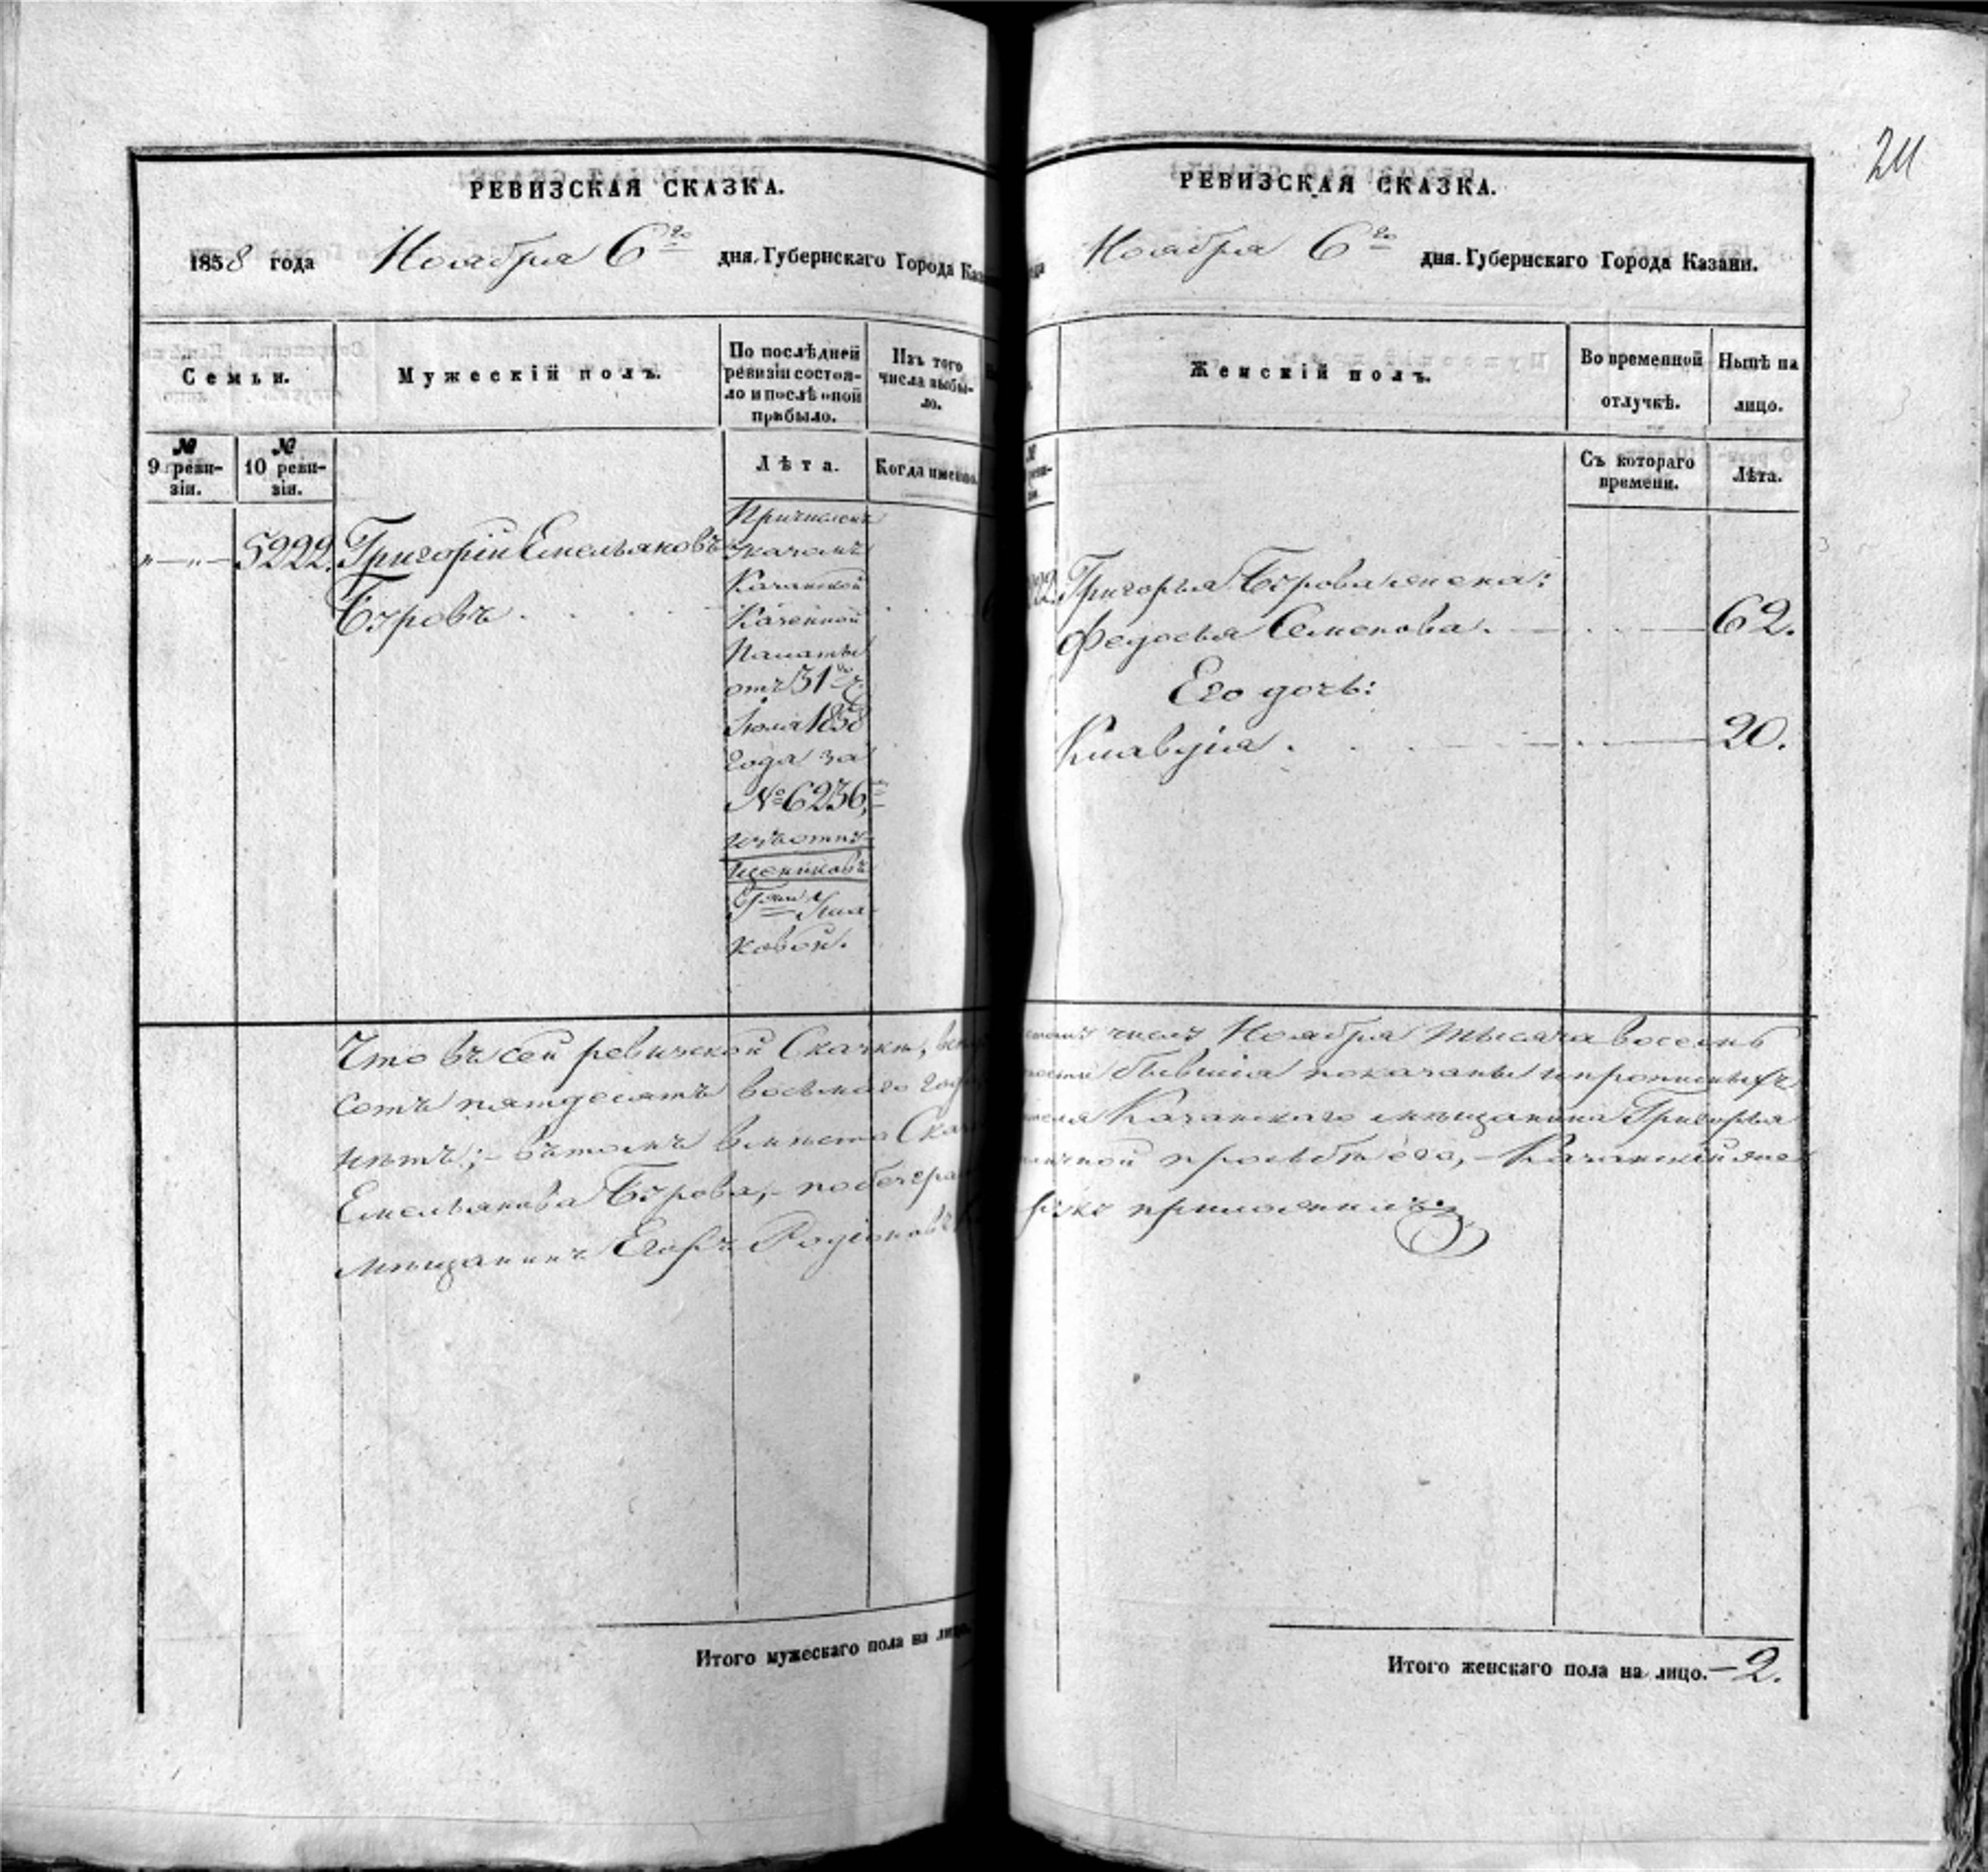 РЕВИЗСКАЯ СКАЗКА.
1858 года Ноября 6го дня. Губернскаго Города Каз
Семьи.
Мужескій полъ.
По послѣдней ревизіи состоя-
ло и послѣ оной
прибыло.
Изъ того
числа выбы-
ло.
№
9 реви-
зіи.
№
10 реви-
зіи.
Лѣта.
Когда именно.
„—„— 5222. Григорій Емельяновъ
Бѣровъ
Причисленъ
Указомъ
Казанской
Казенной
Палаты
отъ 31го
Іюля 1858
года за
№ 6236,
изъ отпу-
щенниковъ
Г-жи
ковой.
Что въ сей ревизской Сказки,
сотъ пятдесятъ восьмаго года
нѣтъ; въ томъ вмѣсто
Емельянова Бѣрова, по безгра
мѣщанинъ Егоръ Родіоновъ
Итого мужескаго пола на лицо.
24
РЕВИЗСКАЯ СКАЗКА.
Ноября 6го дня. Губернскаго Города Казани.
Женскій полъ.
Во временной
отлучкѣ.
Нынѣ на
лицо.
№
Съ котораго
времени.
Лѣта.
Григорья Бѣрова жена:
Федосья Семенова. 62.
Его дочь:
Клавдія. 20.
числѣ Ноября тысяча восемь
бывшія показаны и прописныхъ
Казанскаго мѣщанина Григорья
просьбѣ его, Казанскій же
руку приложилъ
Итого женскаго пола на лицо. — 2.